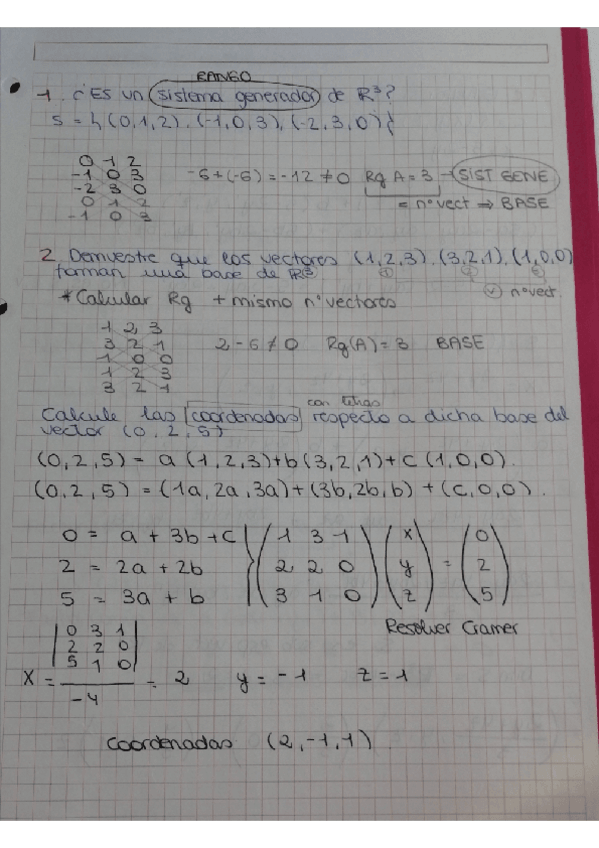 RANGO
1. ¿Es un sistema generador de R³?
S = { (0,1,2), (-1,0,3), (-2,3,0) }
0 1 2
-1 0 3
-2 3 0
0 1 2
-1 0 3
-6+(-6) = -12 ≠ 0 Rg A = 3 → SIST GENE
= nº vect ⇒ BASE
2. Demuestre que los vectores (1,2,3), (3,2,1), (1,0,0)
forman una base de R³ ① ② ③
* Calcular Rg + mismo nº vectores ✓ nº vect.
1 2, 3
3 2 1
1 0 0
1 2 3
3 2 1
2-6 ≠ 0 Rg(A) = 3 BASE
con letras
Calcule las coordenadas respecto a dicha base del
vector (0,2,5)
(0,2,5) = a (1,2,3) + b (3,2,1) + c (1,0,0).
(0,2,5) = (1a, 2a, 3a) + (3b, 2b, b) + (c, 0, 0).
0 = a + 3b + c } ( 1 3 1 ) ( x ) ( 0 )
2 = 2a + 2b } ( 2 2 0 ) ( y ) = ( 2 )
5 = 3a + b } ( 3 1 0 ) ( z ) ( 5 )
Resolver Cramer
| 0 3 1 |
| 2 2 0 |
| 5 1 0 |
X = = 2 y = -1 z = 1
-4
Coordenadas (2, -1, 1)